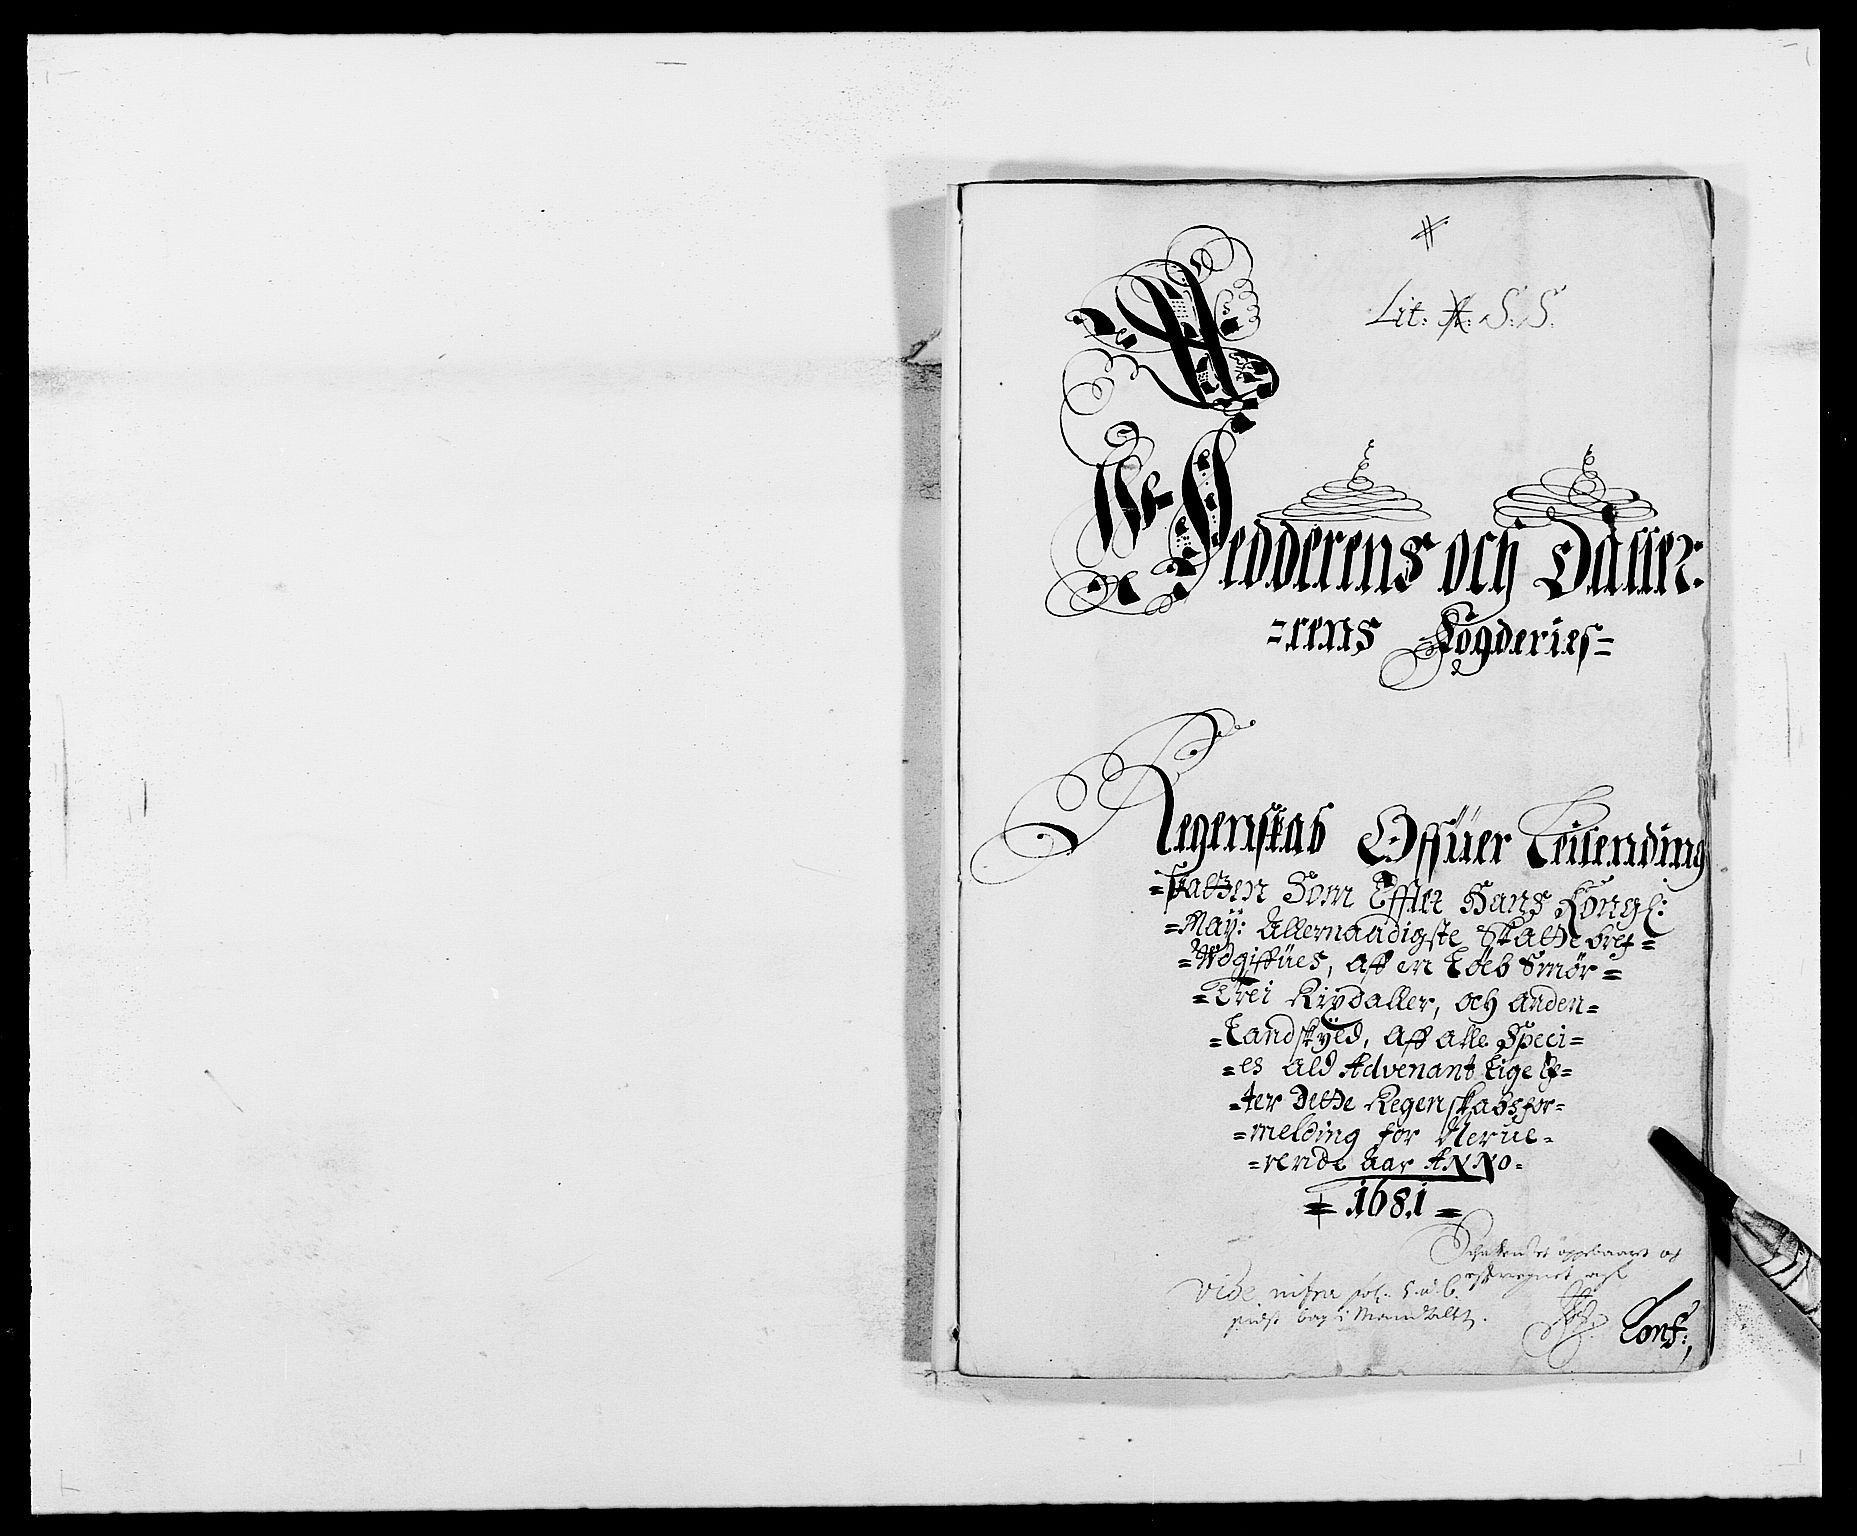 Lit: A: S: S.
Jedderens och Daller=
=rens Fögderies=
Regenskab Offuer Leilending
=skatten Som Effter Hans Kongl:
=May: Allernaadigste Skatte bref=
=Udgiffues, aff en Løeb Smør=
=Trei Rixdaller, och anden=
=Landskÿld, aff alle Speci=
=es ald Advenant Lige Ef=
=ter Dette Regenskabs for=
=melding for Nerue=
=rende Aar ANNO=
=1681=
vide infra fol. 5. a. 6.
sidst bag i Mandtallt.
Conf:,